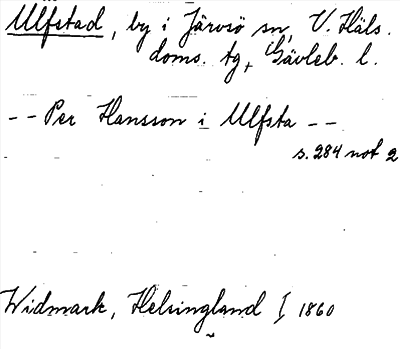 Ulfstad, by i Järvsö sn, V. Häls.
doms. tg, Gävleb. l.
-- Per Hansson i Ulfsta --
s. 284 not 2
Widmark, Helsingland I 1860